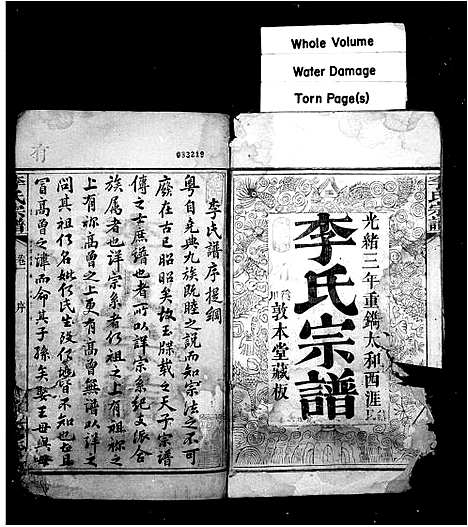 Whole Volume
Water Damage
Torn Page(s)
光緒三年重鐫太和西涯
李氏宗譜
敦本堂藏板
李氏宗譜
083219
李氏譜序提綱
粵自堯典九族既睦之説而知宗法之不可
廢在古已昭昭矣故玉牒載之天子宗譜
傳之士庶譜也者所以詳宗系紀支派合
族属者也詳宗系者何祖之上有祖祢之
上有祢高曾之上更有高曾無譜以詳之
問其祖何名妣何氏生没何
不知也甚
冒高曾之諱而命其子孫矣娶王母與
李氏宗譜
卷一
序